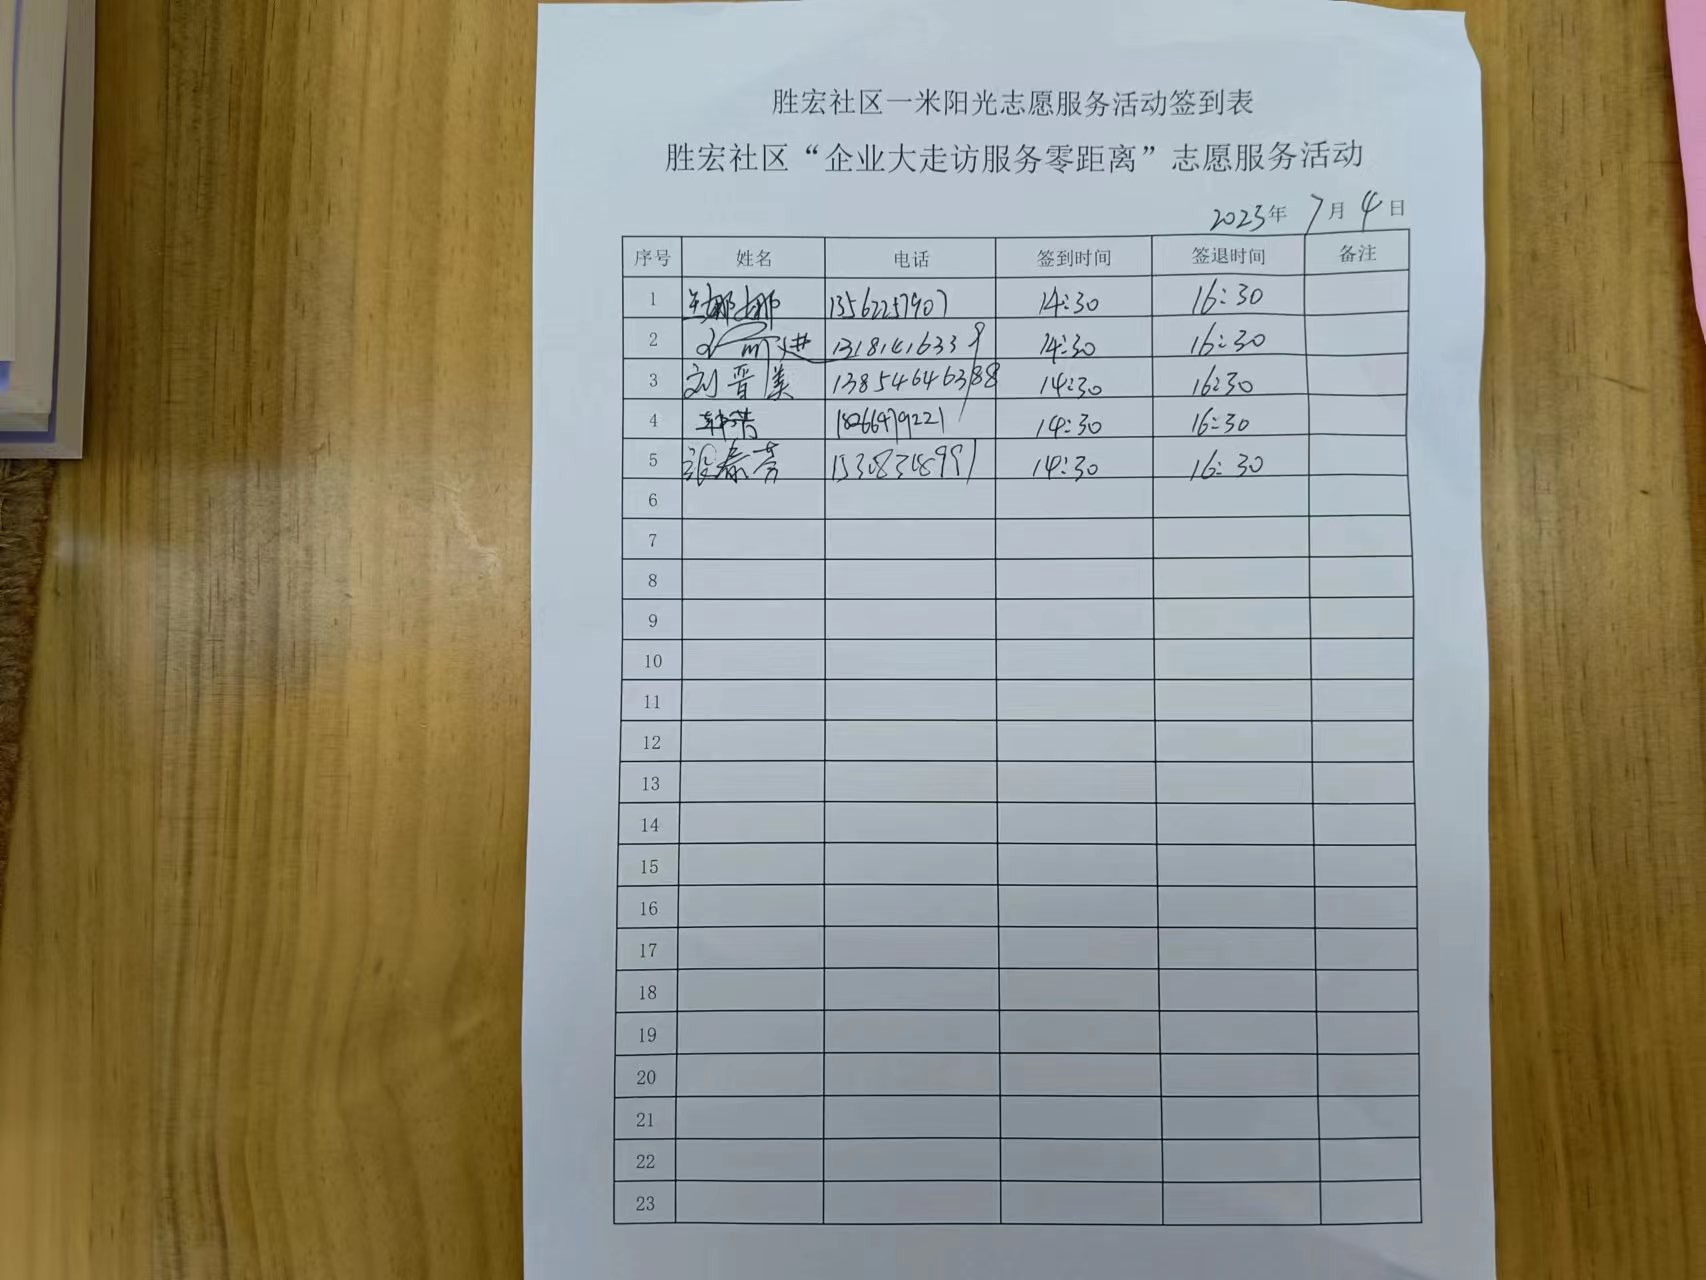 胜宏社区一米阳光志愿服务活动签到表
胜宏社区“企业大走访服务零距离”志愿服务活动
2023年 7月 4日
序号 姓名 电话 签到时间 签退时间 备注
1 兰娜娜 13562257907 14:30 16:30
2 13181416339 14:30 16:30
3 刘晋美 13854646388 14:30 16:30
4 韩倩 18266479221 14:30 16:30
5 张春芳 14:30 16:30
6
7
8
9
10
11
12
13
14
15
16
17
18
19
20
21
22
23